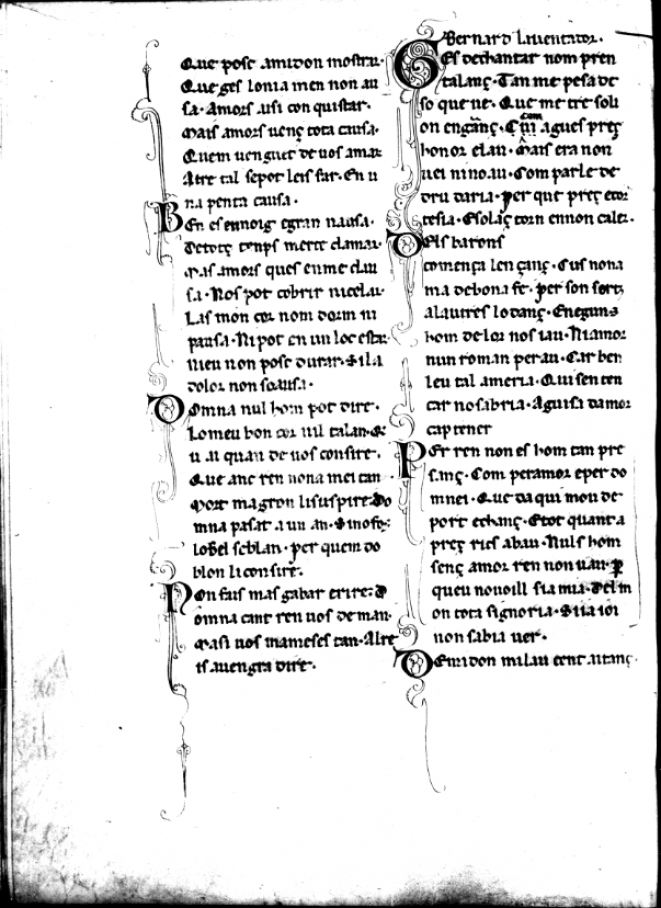 Que posc amidon mostrar.
Que ges lonia men non au
sa. Amors usi con quistar.
Mais amors uenç tota causa.
Quem uenguet de uos amar
Atre tal sepot leis far. En u
na penta causa.
Ben es ennoig egran nausa.
Detotç temps merce clamar.
Mas amors ques enme clau
sa. Nos pot cobrir nicelar.
Las mon cor nom dorm ni
pausa. Ni pot en un loc estar.
Nieu non posc durar. Sila
dolor non soausa.
Domna nul hom pot dire.
Lo meu bon cor nil talan. Q
u ai quan de uos consire.
Que anc ren nona mei tan
Mort magron li suspire. Do
mna pasat a un an. Sinofos
lobel seblan. per quem do
blon li consire.
Non fais mas gabar erire. D
omna cant ren uos deman.
Masi uos mameses tan. Alre
is auengra dire.
Bernard Liventator.
Ges dechantar nom pren
talanç. Tan me pesa de
so que ue. Que me tre soli
on engranç. Com agues preç
honor elau. Mais era non
uei nino au. Com parle de
dru daria. per que preç ecor
tesia. E solaç torn en non caler.
Dels barons
comença lençanç. Cus nona
ma debona fe. per son sorç
alautres lodanç. Enegus
hom de lor nos iau. Ni amor
nun roman perau. Car ben
leu tal ameria. Qui sen ten
tar no sabria. Aguisa damor
cap tener
Per ren non es hom tan pre
sanç. Com peramor eper do
mnei. Que daqui mou de
port echanç. Etot quant a
preç ries abau. Nuls hom
senç amor ren non uau. per
queu nouoill sia mia. Del m
on tota signoria. Siia ioi
non sabia uer.
De midon milau cent aitanç.